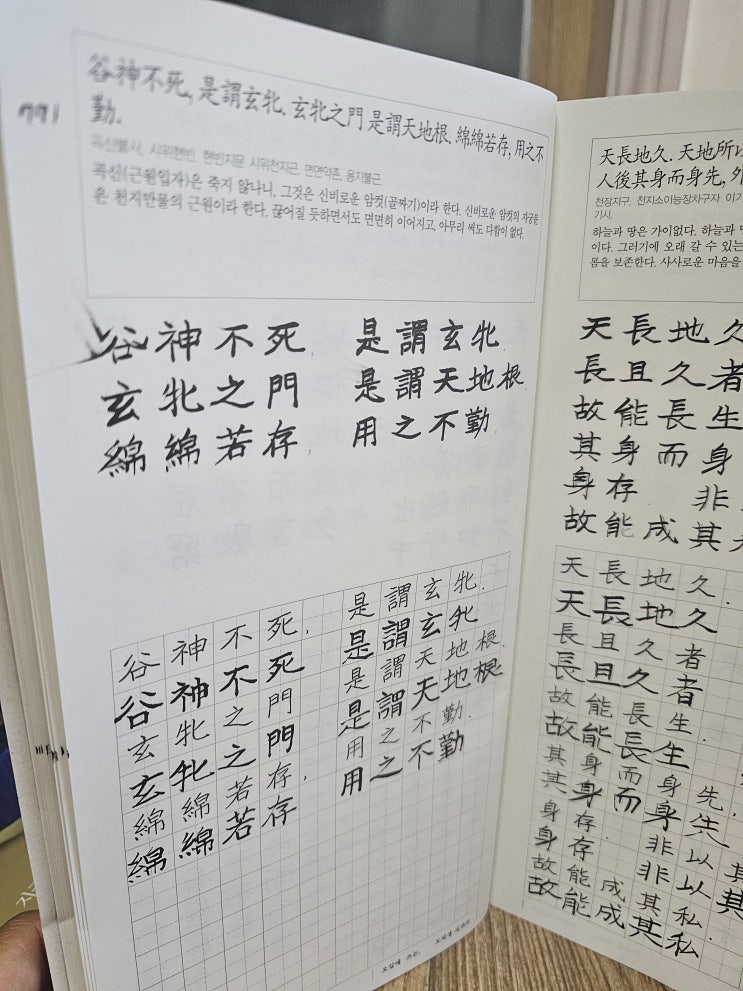 谷神不死, 是謂玄牝. 玄牝之門 是謂天地根, 綿綿若存, 用之不
勤.
곡신불사, 시위현빈. 현빈지문 시위천지근. 면면약존, 용지불근.
곡신(근원입자)은 죽지 않나니, 그것은 신비로운 암컷(골짜기)이라 한다. 신비로운 암컷의 자궁문
은 천지만물의 근원이라 한다. 끊어질 듯하면서도 면면히 이어지고, 아무리 써도 다함이 없다.
谷神不死, 是謂玄牝.
玄牝之門 是謂天地根.
綿綿若存, 用之不勤.
谷神不死, 是謂玄牝.
谷神不死 是謂玄牝
玄牝之門 是謂天地根.
玄牝之門 是謂天地根
綿綿若存, 用之不勤.
綿綿若存 用之不勤
天長地久. 天地所以
人後其身而身先, 外
천장지구. 천지소이능장차구자 이기
기사.
하늘과 땅은 가이없다. 하늘과
이다. 그러기에 오래 갈 수 있는
몸을 보존한다. 사사로운 마음을
天長地久
長且久者
故能長生
其身而身
身存 非
故能成其
天長地久.
天長地久
長且久者
長且久者
故能長生.
故能長生
其身而身先,
其身而身先
身存. 非以其
身存 非以其
故能成其私.
故能成其私